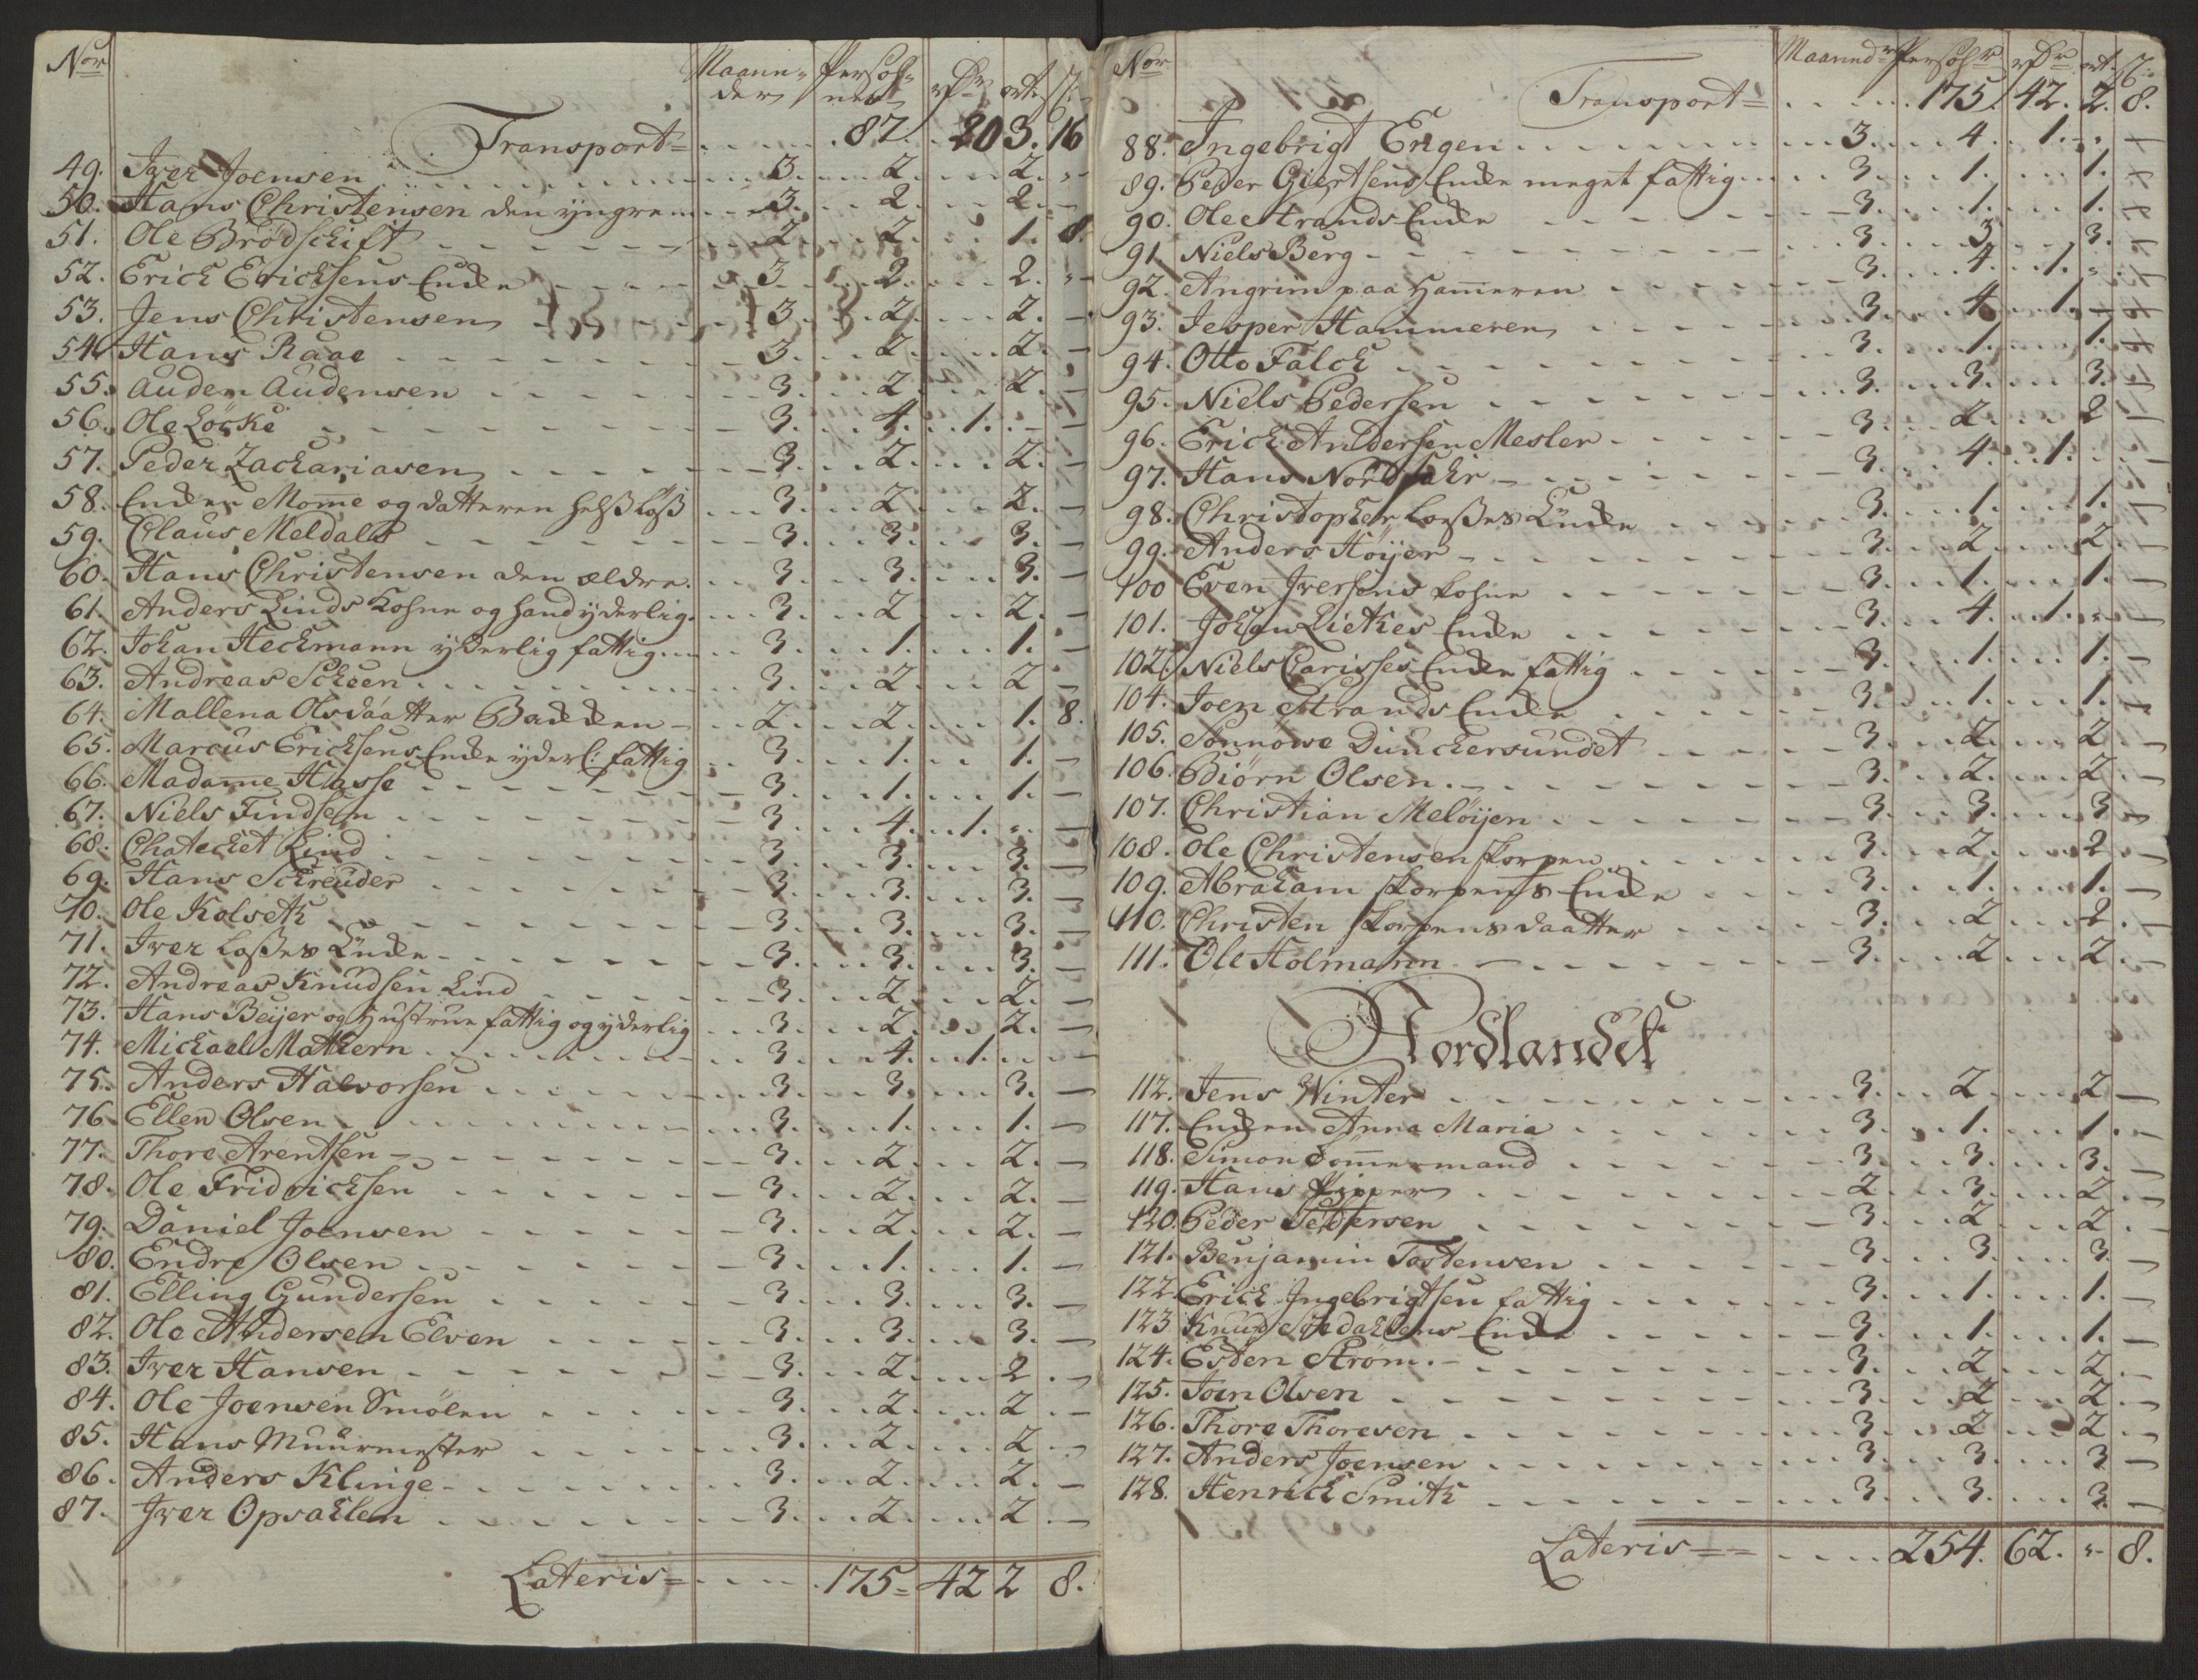 Nor Maann- Persoh- rdr ort ß
der ner
Transport = . . . . . 87. . 20 3. 16
49. Iver Joensen . . . 3. . . 2. . . . 2. „ -
50. Hans Christensen den yngre . . . 3. . . 2. . . . 2. -
51. Ole Brödschift - - - 2. . . 2. . . . 1. 8.
52. Erich Erichsens Enke - - - 3. . . 2. . . . 2. „ -
53. Jens Christensen - - - 3. . . 2. . . . 2. -
54. Hans Raae - - - 3. . . 2. . . . 2. -
55. Auden Audensen - - - 3. . . 2. . . . 2. -
56. Ole Löcke - - - 3. . . 4. . 1. . -
57. Peder Zachariasen - - - 3. . . 2. . . . 2. -
58. Enken Mome og datteren helsß löß . . . 3. . . 2. . . . 2. -
59. Claus Meldals - - - 3. . . 3. . . . 3. -
60. Hans Christensen den ældre. . . 3. . . 3. . . . 3. -
61. Anders Linds Kohne og hand yderlig. . . 3. . . 2. . . . 2. -
62. Johan Heckmann yderlig fattig. . . . 3. . . 1. . . . 1. -
63. Andreas Scheen . . . 3. . . 2. . . . 2 -
64. Mallena Olsdaatter Badden - . . 2. . . 2. . . . 1. 8.
65. Marcus Erichsens Enke yderl: fattig . . 3. . . 1. . . . 1. -
66. Madame Hasse - - - 3. . . 1. . . . 1. -
67. Niels Findsen - - - 3. . . 4. . 1. „ -
68. Chateket Lind - - - 3. . . 3. . . . 3. -
69. Hans Schreuder - - - 3. . . 3. . . . 3. -
70. Ole Kolseth - - - 3. . . 3. . . . 3. -
71. Iver Loßes Enke - - - 3. . . 3. . . . 3. -
72. Andreas Knudsen Lind - - - 3. . . 2. . . . 2. -
73. Hans Beyer og Hustrue fattig og yderlig . . . 3. . . 2. . . . 2. -
74. Michael Mathern . . . 3. . . 4. . 1. . . -
75. Anders Halvorsen . . . 3. . . 3. . . . 3. -
76. Ellen Olsen . . . 3. . . 1. . . . 1. -
77. Thore Arentsen - - - 3. . . 2. . . . 2. -
78. Ole Fridrichsen - - - 3. . . 2. . . . 2. -
79. Daniel Joensen - - - 3. . . 2. . . . 2. -
80. Endre Olsen . . . 3. . . 1. . . . 1. -
81. Elling Gundersen - - - 3. . . 3. . . . 3. -
82. Ole Andersen Elven - - - 3. . . 3. . . . 3. -
83. Iver Hansen - - - 3. . . 2. . . . 2 . -
84. Ole Joensen Smölen - - - 3. . . 2. . . . 2 . -
85. Hans Muurmester - - - 3. . . 2. . . . 2. -
86. Anders Klinge - - - 3. . . 2. . . . 2. -
87. Iver Opsahlen - - - 3. . . 2. . . . 2 . -
Lateris = . . . . . 175 = 42 2 8.
Nor Maannd Persohr rdr ort ß
Transport = . . . . . 175. 42. 2. 8.
88. Ingebrigt Engen . . . 3. . . 4. . 1. „
89. Peder Giertsens Enke meget fattig . . . 3. . . 1. . . . 1.
90. Ole Strands Enke - - - 3. . . 1. . . . 1.
91. Niels Berg - - - 3. . . 3. . . . 3.
92. Angrim paa Hameren - - - 3. . . 4. . 1. „
93. Jesper Hammeren - - - 3. . . 4. . 1. -
94. Otto Falch - - - 3. . . 1. . . . 1.
95. Niels Pedersen - - - 3. . . 3. . . . 3.
96. Erich Andersen Mesler - - - 3. . . 2. . . . 2
97. Hans Nordfahr - - - 3. . . 4. . 1.
98. Christopher Loeßes Enke . . . 3. . . 1. . . . 1. -
99. Anders Höijer - - - 3. . . 2. . . . 2. -
100 Even Iversens Kohne . . . 3. . . 1. . . . 1. -
101. Johan Liethes Enke . . . 3. . . 4. . 1. „ -
102. Niels Carisses Enke fattig . . . 3. . . 1. . . . 1. -
104. Joen Strands Enke . . . 3. . . 1. . . . 1. -
105. Sonnowe Dunckersundet . . . 3. . . 2. . . . 2. -
106. Biörn Olsen . - - - 3. . . 2. . . . 2. -
107. Christian Melöijen . . . 3. . . 3. . . . 3 -
108. Ole Christensen Korpen . . . 3. . . 2. . . . 2. -
109. Abraham Korpens Enke . . . 3. . . 1. . . . 1. -
110. Christen Korpens daatter . . . 3. . . 2. . . . 2. -
111. Ole Holmann - - - 3. . . 2. . . . 2. -
Nordlandet
112. Jens Winter . . . 3. . . 2. . . . 2 -
117. Enken Anna Maria . . . 3. . . 1. . . . 1. -
118. Simon Tömermand . . . 3. . . 3. . . . 3. -
119. Hans Pipper . . . 2. . . 3. . . . 2. -
120. Peder Pedersen - - - 3. . . 2. . . . 2. -
121. Benjamin Tostensen - - - 3. . . 3. . . . 3. -
122. Erich Ingebrigtsen fattig - - - 3. . . 1. . . . 1. -
123 Knud Sördahlens Enke - - - 3. . . 1. . . . 1. -
124. Esten Ström. - - - 3. . . 2. . . . 2. -
125. Joen Olsen - - - 3. . . 2. . . . 2. -
126. Thore Thoresen - - - 3. . . 2. . . . 2. -
127. Anders Joensen - - - 3. . . 3. . . . 3 -
128. Henrich Smith - - - 3. . . 3. . . . 3. -
Lateris = = . . . . . 254. 62. „ - 8.